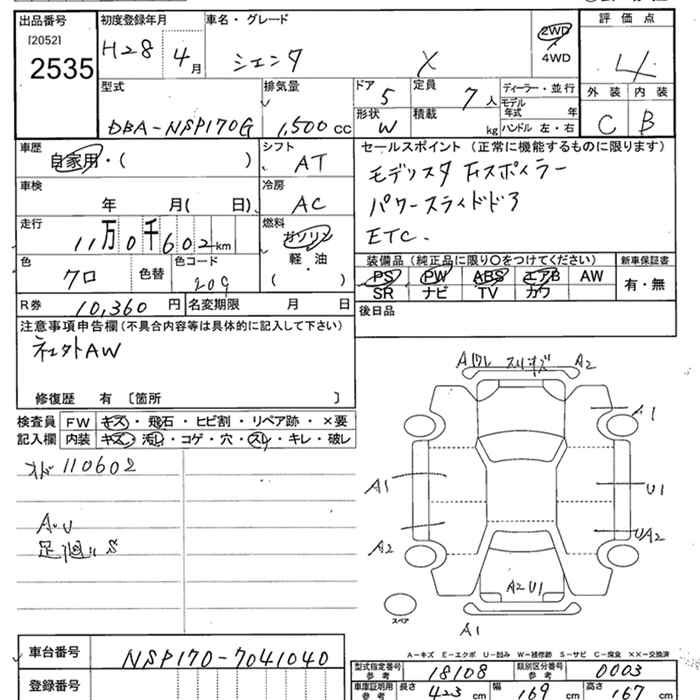 出品番号 初度登録年月 車名・グレード 評価点
[2052]
2535
H28 4月 シエンタ X 2WD 4
4WD
型式 排気量 ドア 5 定員 7人 ディーラー・並行 外装 内装
モデル年式 年
DBA-NSP170G 1,500cc 形状 W 積載 kg ハンドル 左・右 C B
車歴 シフト セールスポイント (正常に機能するものに限ります)
自家用・( ) AT モデリスタ Fスポイラー
車検 冷房 パワースライドドア
年 月( 日) AC ETC.
走行 燃料
11万0千602km ガソリン
軽・油
( )
装備品 (純正品に限り〇をつけてください) 新車保証書
色 色替 色コード PS PW ABS エアB AW 有・無
クロ 209 SR ナビ TV カワ
R券 10,360円 名変期限 月 日 後日品
注意事項申告欄(不具合内容等は具体的に記入して下さい)
社外AW
修復歴 有 〔箇所 〕
検査員 FW キズ・飛石・ヒビ割・リペア跡・×要
記入欄 内装 キズ・汚れ・コゲ・穴・スレ・キレ・破レ
110602
A.U
足廻りS
A1 A2
A1
A1 U1
A2 UA2
A2 U1
スペア A1
A-キズ E-エクボ U-凹み W-補修跡 S-サビ C-腐食 ××-交換済
車台番号 NSP170-7041040
型式指定番号 参考 18108 類別区分番号 参考 0003
登録番号 車庫証明用 参考 長さ 423cm 幅 169cm 高さ 167cm